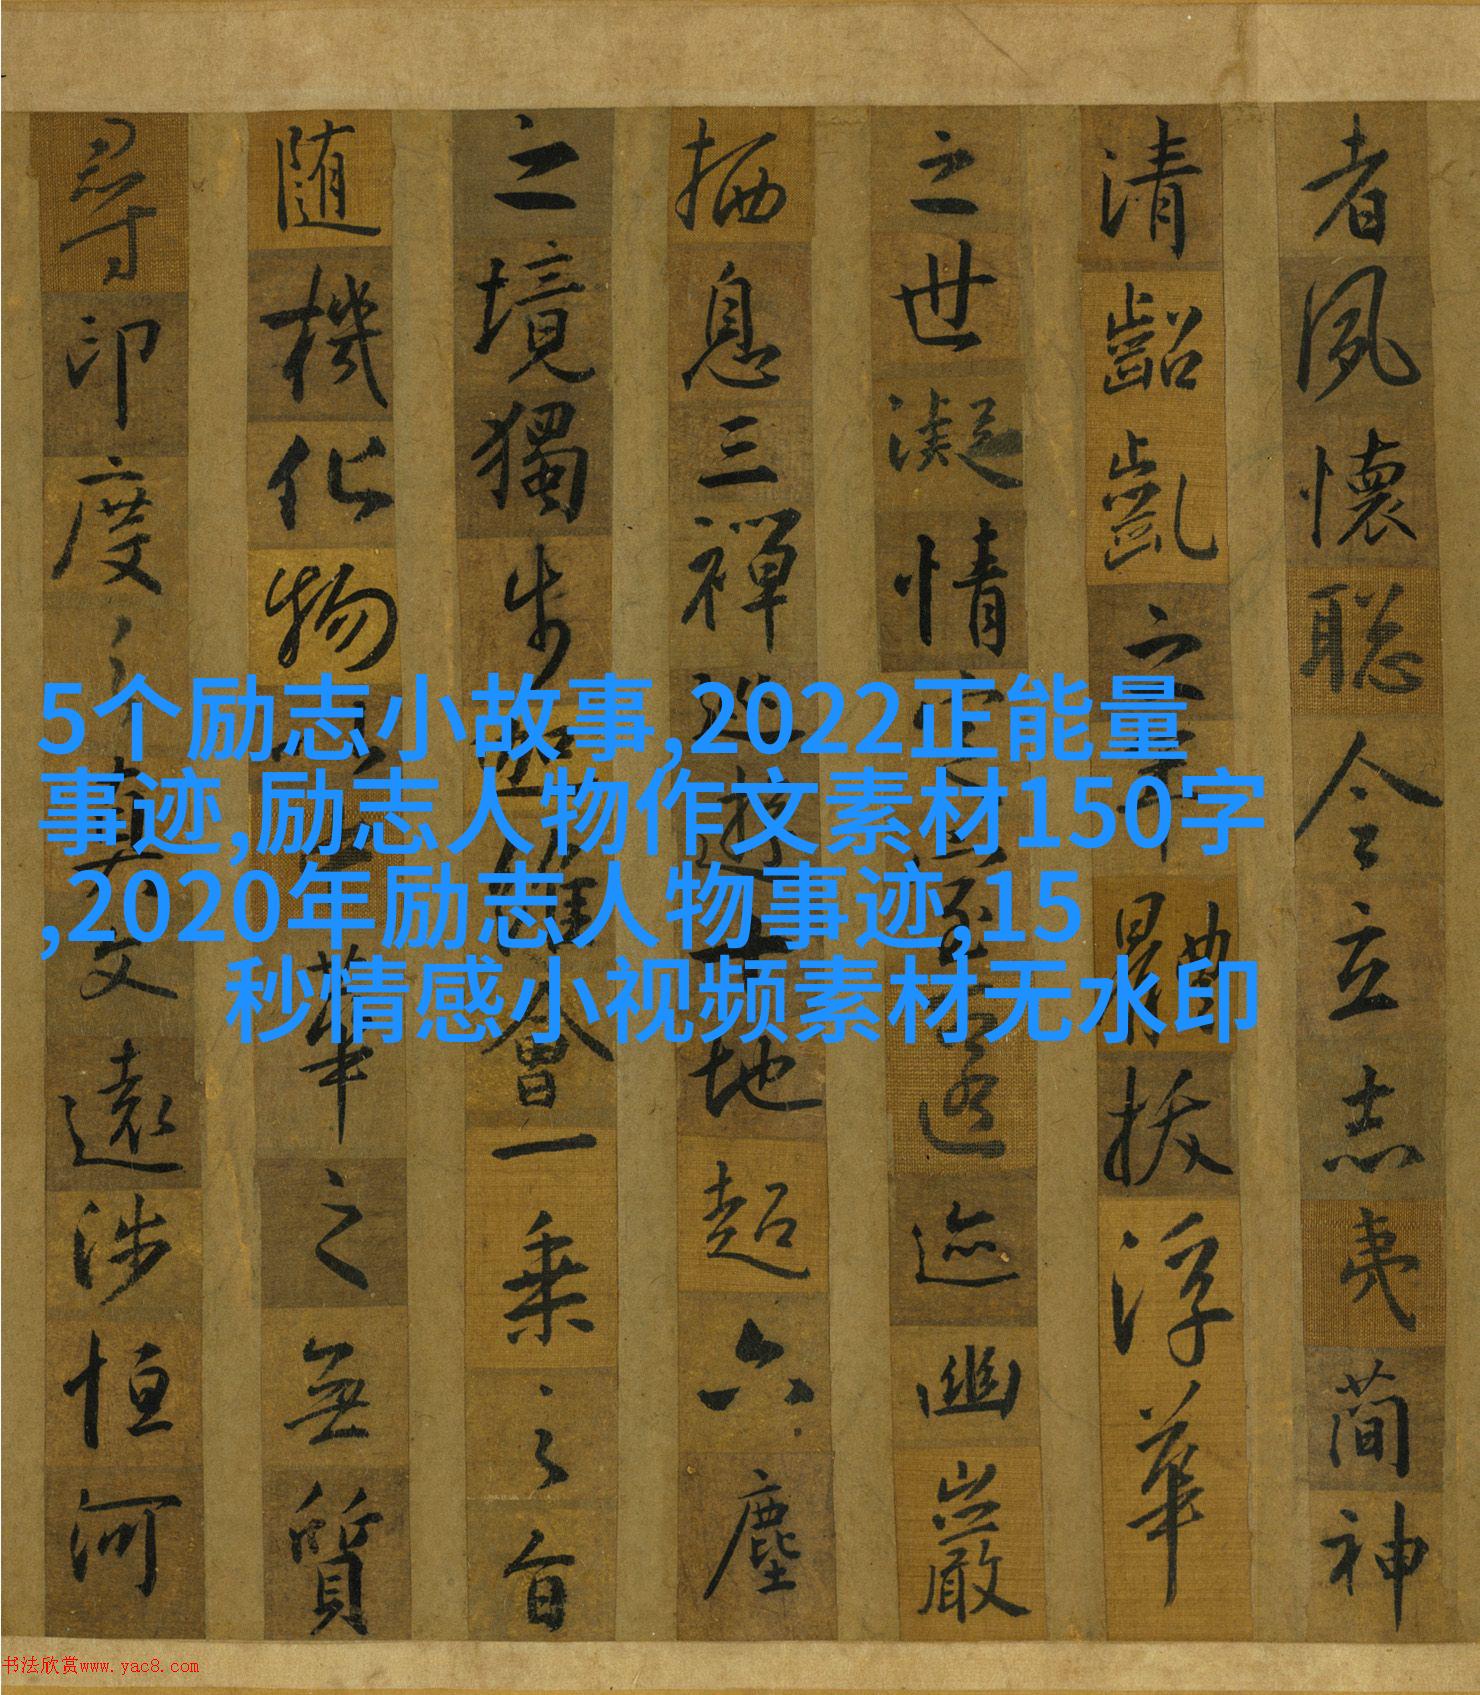 者夙懷聡令立志夷簡神
清齠齔之年體拔浮華
之世凝情定室迹幽巖
栖息三禪巡遊十地超六塵
之境獨步迦維會一乘之旨
随機化物以中華之無質
尋印度之真文遠涉恒河
5个励志小故事,2022正能量
事迹,励志人物作文素材150字
,2020年励志人物事迹,15
秒情感小视频素材无水印
书法欣赏www.yac8.com